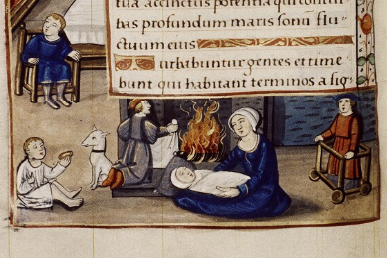 tua accinctus potentia qui contur
bas profundum maris sonū flu
ctuum eius
urbabuntur gentes et time
bunt qui habitant terminos a sig